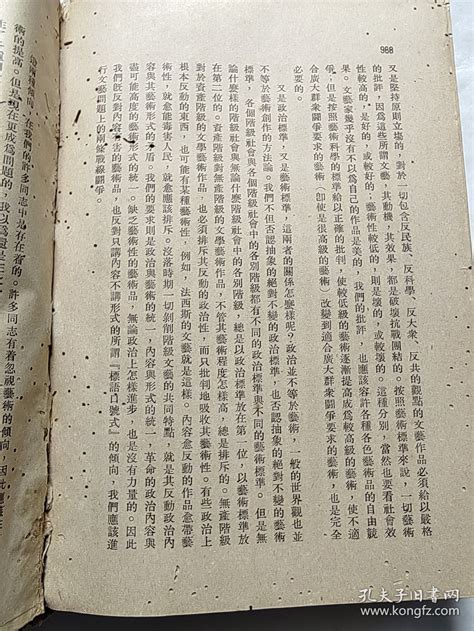 988
又是堅持原則立場的，對於一切包含反民族、反科學、反大衆、反共的觀點的文藝作品必須給以嚴格
的批評，因爲這些所謂文藝，其動機，其效果，都是破壞抗戰團結的。按照藝術標準來說，一切藝術
性較高的，是好的，或較好的；藝術性較低的，則是壞的，或較壞的。這種分別，當然也要看社會效
果。文藝家幾乎沒有不以爲自己的作品是美的，我們的批評，也應該容許各種各色藝術品的自由競
爭；但是按照藝術科學的標準給以正確的批判，使較低級的藝術逐漸提高成爲較高級的藝術，使不適
合廣大群衆鬥爭要求的藝術（卽使是很高級的藝術）改變到適合廣大群衆鬥爭要求的藝術，也是完全
必要的。
又是政治標準，又是藝術標準，這兩者的關係怎麼樣呢？政治並不等於藝術，一般的世界觀也並
不等於藝術創作的方法論。我們不但否認抽象的絕對不變的政治標準，也否認抽象的絕對不變的藝術
標準，各個階級社會與各個階級社會中的各別階級都有不同的政治標準與不同的藝術標準。但是無
論什麼樣的階級社會與無論什麼階級社會中的各別階級，總是以政治標準放在第一位，以藝術標準放
在第二位的。資產階級對無產階級的文學藝術作品，不管其藝術程度怎樣高，總是排斥的。無產階級
對於資產階級的文學藝術作品，也必須排斥其反動的政治性，而只批判地吸收其藝術性。有些政治上
根本反動的東西，也可能有某種藝術性，例如，法西斯的文藝就是這樣。內容愈反動的作品愈帶藝
術性，就愈能毒害人民，就愈應該排斥。沒落時期一切剝削階級文藝的共同特點，就是其反動政治內
容與其藝術形式的矛盾。我們的要求則是政治與藝術的統一，內容與形式的統一，革命的政治內容與
盡可能高度的藝術形式的統一。缺乏藝術性的藝術品，無論政治上怎樣進步，也是沒有力量的。因此
我們旣反對內容有害的藝術品，也反對只講內容不講形式的所謂『標語口號式』的傾向，我們應該進
行文藝問題上的兩條戰線鬥爭。
傾向，在我們的許多同志中是存在着的。許多同志有着忽視藝術的傾向，因此應該注
術的提高。但是現在更成爲問題的，我以爲還是在
孔夫子旧书网
www.kongfz.com